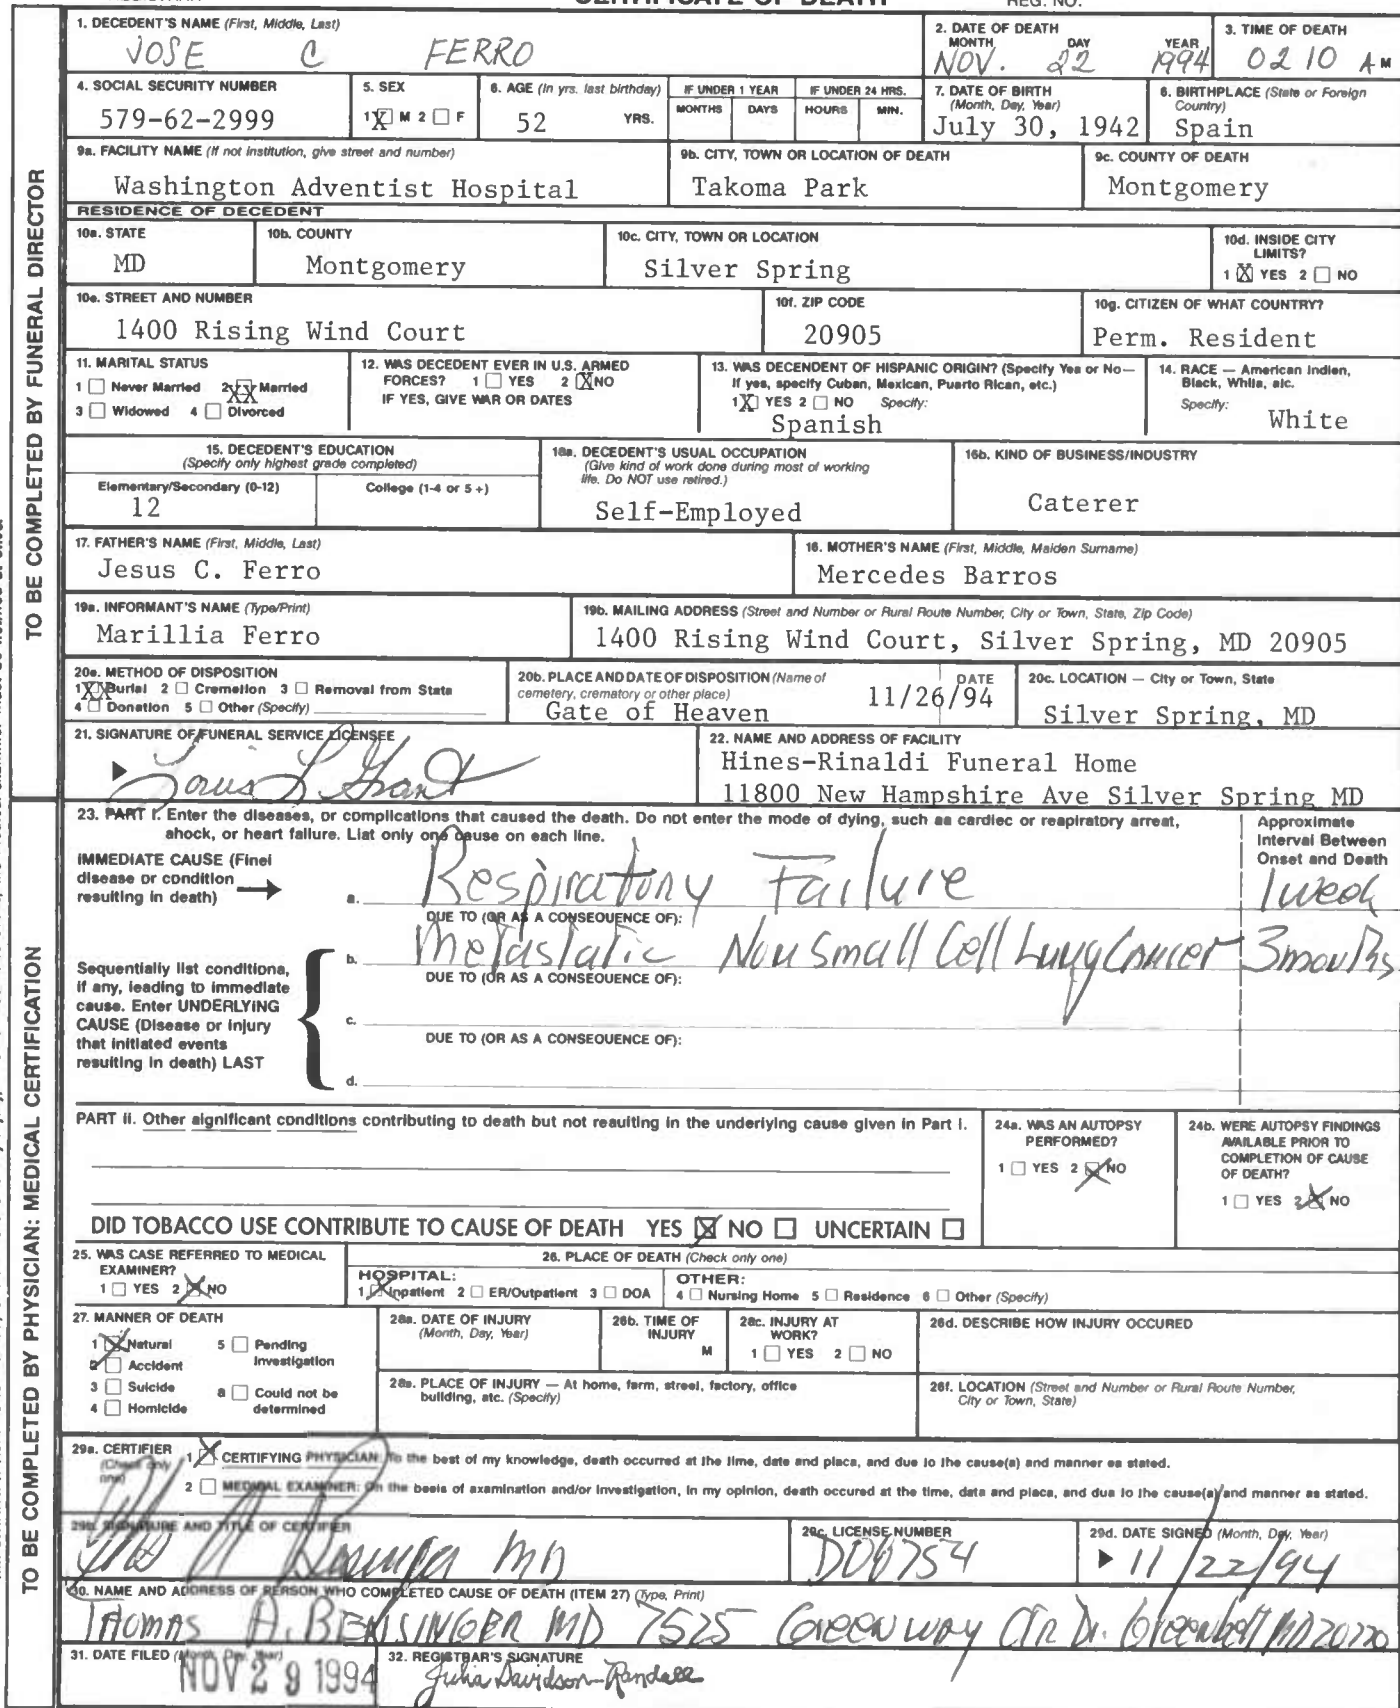 CERTIFICATE OF DEATH REG. NO.
1. DECEDENT'S NAME (First, Middle, Last)
JOSE C FERRO
2. DATE OF DEATH
MONTH DAY YEAR
NOV. 22 1994
3. TIME OF DEATH
0210 A M
4. SOCIAL SECURITY NUMBER
579-62-2999
5. SEX
1 X M 2 F
6. AGE (In yrs. last birthday)
52 YRS.
IF UNDER 1 YEAR
MONTHS DAYS
IF UNDER 24 HRS.
HOURS MIN.
7. DATE OF BIRTH
(Month, Day, Year)
July 30, 1942
8. BIRTHPLACE (State or Foreign
Country)
Spain
9a. FACILITY NAME (If not institution, give street and number)
Washington Adventist Hospital
9b. CITY, TOWN OR LOCATION OF DEATH
Takoma Park
9c. COUNTY OF DEATH
Montgomery
RESIDENCE OF DECEDENT
10a. STATE
MD
10b. COUNTY
Montgomery
10c. CITY, TOWN OR LOCATION
Silver Spring
10d. INSIDE CITY
LIMITS?
1 X YES 2 NO
10e. STREET AND NUMBER
1400 Rising Wind Court
10f. ZIP CODE
20905
10g. CITIZEN OF WHAT COUNTRY?
Perm. Resident
11. MARITAL STATUS
1 Never Married 2 XX Married
3 Widowed 4 Divorced
12. WAS DECEDENT EVER IN U.S. ARMED
FORCES? 1 YES 2 X NO
IF YES, GIVE WAR OR DATES
13. WAS DECENDENT OF HISPANIC ORIGIN? (Specify Yes or No—
If yes, specify Cuban, Mexican, Puerto Rican, etc.)
1 X YES 2 NO Specify:
Spanish
14. RACE — American Indien,
Bleck, Whila, alc.
Specify:
White
15. DECEDENT'S EDUCATION
(Specify only highest grade completed)
Elementary/Secondary (0-12) College (1-4 or 5+)
12
16a. DECEDENT'S USUAL OCCUPATION
(Give kind of work done during most of working
life. Do NOT use retired.)
Self-Employed
16b. KIND OF BUSINESS/INDUSTRY
Caterer
17. FATHER'S NAME (First, Middle, Last)
Jesus C. Ferro
18. MOTHER'S NAME (First, Middle, Maiden Surname)
Mercedes Barros
19a. INFORMANT'S NAME (Type/Print)
Marillia Ferro
19b. MAILING ADDRESS (Street and Number or Rural Route Number, City or Town, State, Zip Code)
1400 Rising Wind Court, Silver Spring, MD 20905
20a. METHOD OF DISPOSITION
1 XX Burial 2 Cremation 3 Removal from State
4 Donation 5 Other (Specify)
20b. PLACE AND DATE OF DISPOSITION (Name of
cemetery, crematory or other place) DATE
Gate of Heaven 11/26/94
20c. LOCATION — City or Town, State
Silver Spring, MD
21. SIGNATURE OF FUNERAL SERVICE LICENSEE
22. NAME AND ADDRESS OF FACILITY
Hines-Rinaldi Funeral Home
11800 New Hampshire Ave Silver Spring MD
TO BE COMPLETED BY FUNERAL DIRECTOR
23. PART I. Enter the diseases, or complications that caused the death. Do not enter the mode of dying, such as cardiec or reapiratory arreat,
ahock, or heart failure. Liat only one cause on each line.
Approximate
Interval Between
Onset and Death
IMMEDIATE CAUSE (Finel
disease or condition
resulting in death)
a. Respiratory Failure 1 week
DUE TO (OR AS A CONSEQUENCE OF):
b. Metastatic Non Small Cell Lung Cancer 3 months
DUE TO (OR AS A CONSEQUENCE OF):
Sequentially list conditiona,
if any, leading to immediate
cause. Enter UNDERLYING
CAUSE (Disease or injury
that initiated events
resulting in death) LAST
c.
DUE TO (OR AS A CONSEQUENCE OF):
d.
PART II. Other aignificant conditions contributing to death but not reaulting in the underlying cause given in Part I.
24a. WAS AN AUTOPSY
PERFORMED?
1 YES 2 X NO
24b. WERE AUTOPSY FINDINGS
AVAILABLE PRIOR TO
COMPLETION OF CAUSE
OF DEATH?
1 YES 2 X NO
DID TOBACCO USE CONTRIBUTE TO CAUSE OF DEATH YES X NO UNCERTAIN
25. WAS CASE REFERRED TO MEDICAL
EXAMINER?
1 YES 2 X NO
26. PLACE OF DEATH (Check only one)
HOSPITAL:
1 X Inpatient 2 ER/Outpatient 3 DOA
OTHER:
4 Nursing Home 5 Residence 6 Other (Specify)
27. MANNER OF DEATH
1 X Natural 5 Pending
Investigation
2 Accident
3 Suicide 6 Could not be
determined
4 Homicide
28a. DATE OF INJURY
(Month, Day, Year)
28b. TIME OF
INJURY
M
28c. INJURY AT
WORK?
1 YES 2 NO
28d. DESCRIBE HOW INJURY OCCURED
28e. PLACE OF INJURY — At home, farm, street, factory, office
building, etc. (Specify)
28f. LOCATION (Street and Number or Rural Route Number,
City or Town, State)
29a. CERTIFIER
(Check only
one)
1 X CERTIFYING PHYSICIAN: To the best of my knowledge, death occurred at the time, date and placa, and due to the cause(a) and manner as stated.
2 MEDICAL EXAMINER: On the basis of examination and/or investigation, in my opinion, death occured at the time, data and placa, and due to the cause(a) and manner as stated.
29b. SIGNATURE AND TITLE OF CERTIFIER
MD
29c. LICENSE NUMBER
D06754
29d. DATE SIGNED (Month, Day, Year)
11/22/94
30. NAME AND ADDRESS OF PERSON WHO COMPLETED CAUSE OF DEATH (ITEM 27) (Type, Print)
THOMAS A. BENSINGER MD 7525 Greenway Ctr Dr. Greenbelt MD 20770
31. DATE FILED (Month, Day, Year)
NOV 29 1994
32. REGISTRAR'S SIGNATURE
Julia Davidson-Randall
TO BE COMPLETED BY PHYSICIAN: MEDICAL CERTIFICATION